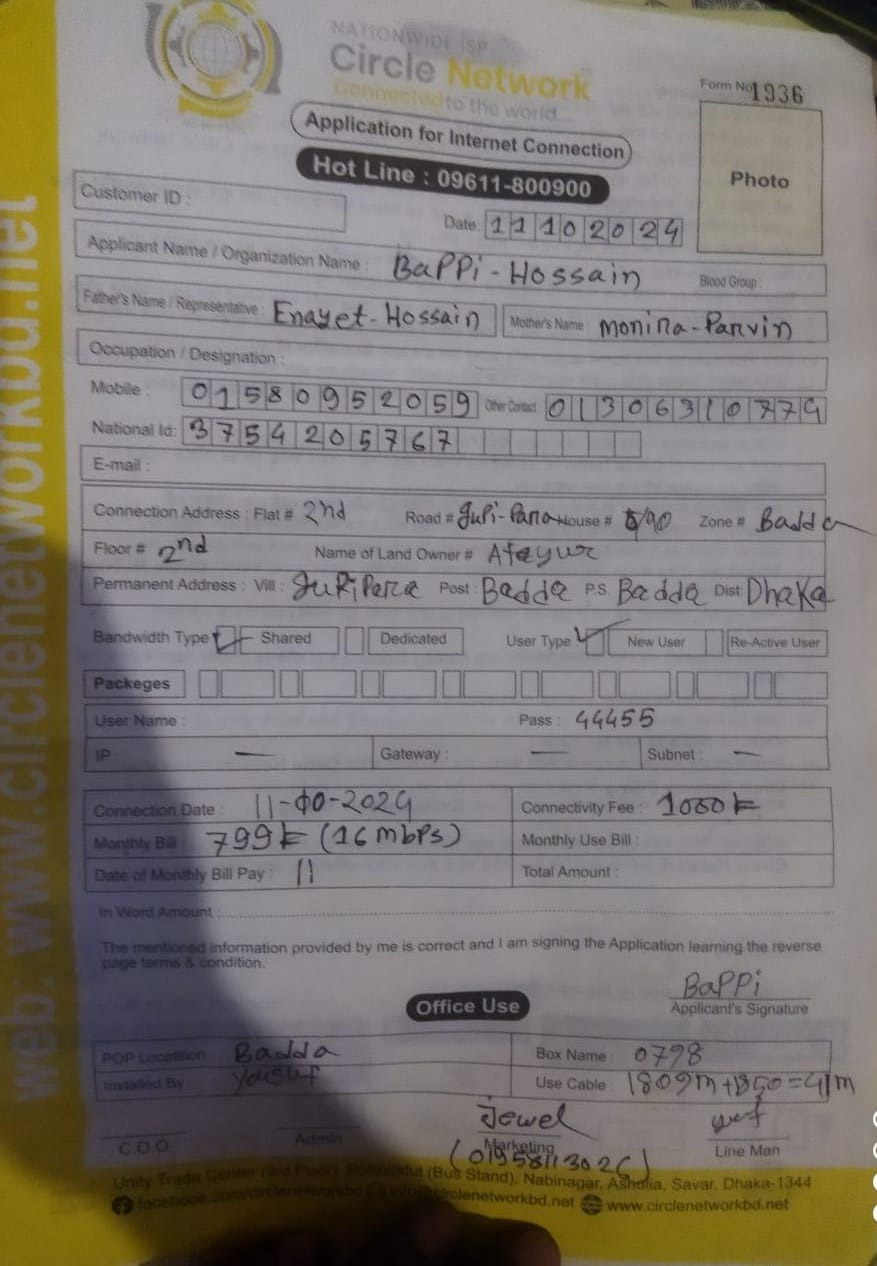 NATIONWIDE ISP
Circle Network
Connected to the world
Form No 1936
Application for Internet Connection
Hot Line : 09611-800900
Photo
Customer ID :
Date: 11102024
Applicant Name / Organization Name : BaPPi - Hossain Blood Group :
Father's Name / Representative : Enayet - Hossain Mother's Name : monira - Parvin
Occupation / Designation :
Mobile : 01580952059 Other Contact 01306310774
National Id: 3754205767
E-mail :
Connection Address : Flat # 2nd Road # Jupi-Para House # 5/90 Zone # Badda
Floor # 2nd Name of Land Owner # Atayur
Permanent Address : Vill : Post : Badda P.S. Badda Dist: Dhaka
Bandwidth Type Shared Dedicated User Type : New User Re-Active User
Packeges
User Name : Pass : 44455
IP : — Gateway : — Subnet : —
Connection Date : 11-10-2024 Connectivity Fee : 1000 ৳
Monthly Bill : 799 ৳ (16 mbps) Monthly Use Bill :
Date of Monthly Bill Pay : 11 Total Amount :
In Word Amount :
The mentioned information provided by me is correct and I am signing the Application learning the reverse
page terms & condition.
BaPPi
Office Use
Applicant's Signature
POP Locatition Badda Box Name : 0798
Installed By Yousuf Use Cable : 1809m+1850=41m
Jewel
C.O.O Admin Marketing Line Man
Unity Trade Center (3rd Floor), (Bus Stand), Nabinagar, Ashulia, Savar, Dhaka-1344
facebook.com/circlenetworkbd info@circlenetworkbd.net www.circlenetworkbd.net
web: www.circlenetworkbd.net